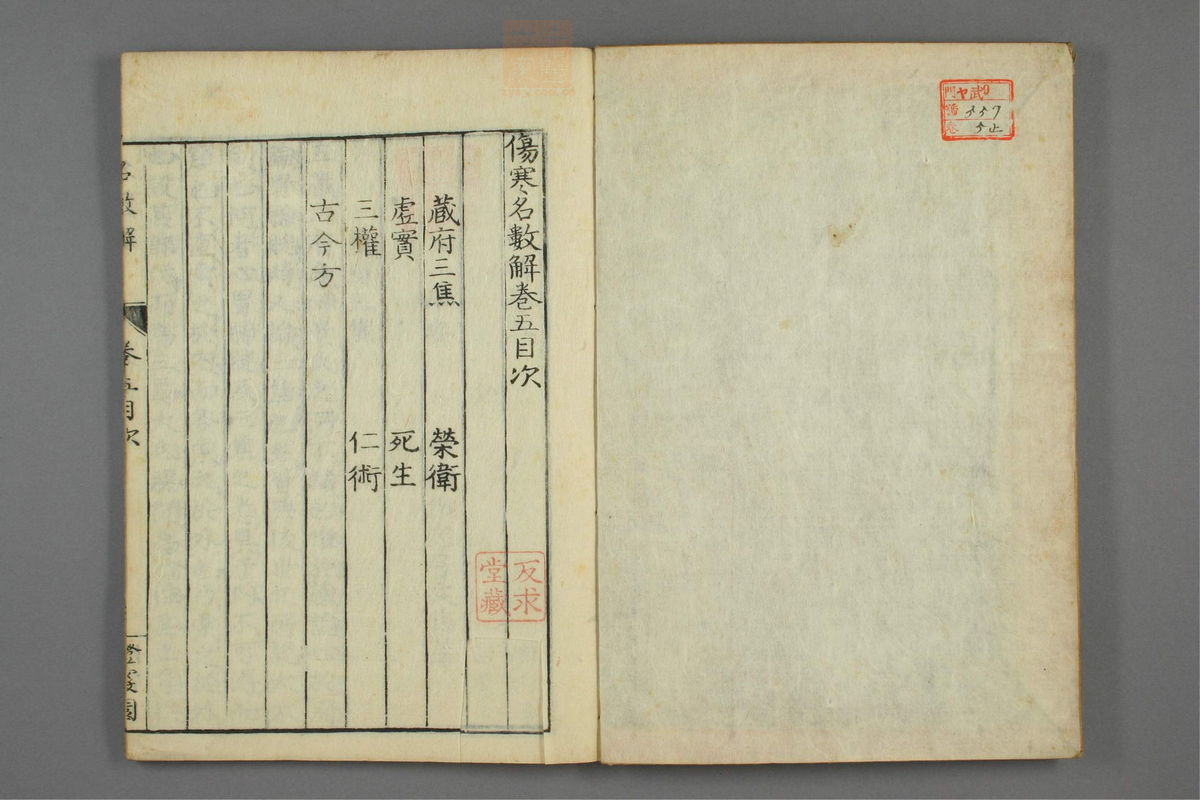 傷寒名數解卷五目次
蔵府三焦 榮衛
虛實 死生
三權 仁術
古今方
名數解 卷五目次
反求
堂藏
門ヤ武9
557
5止